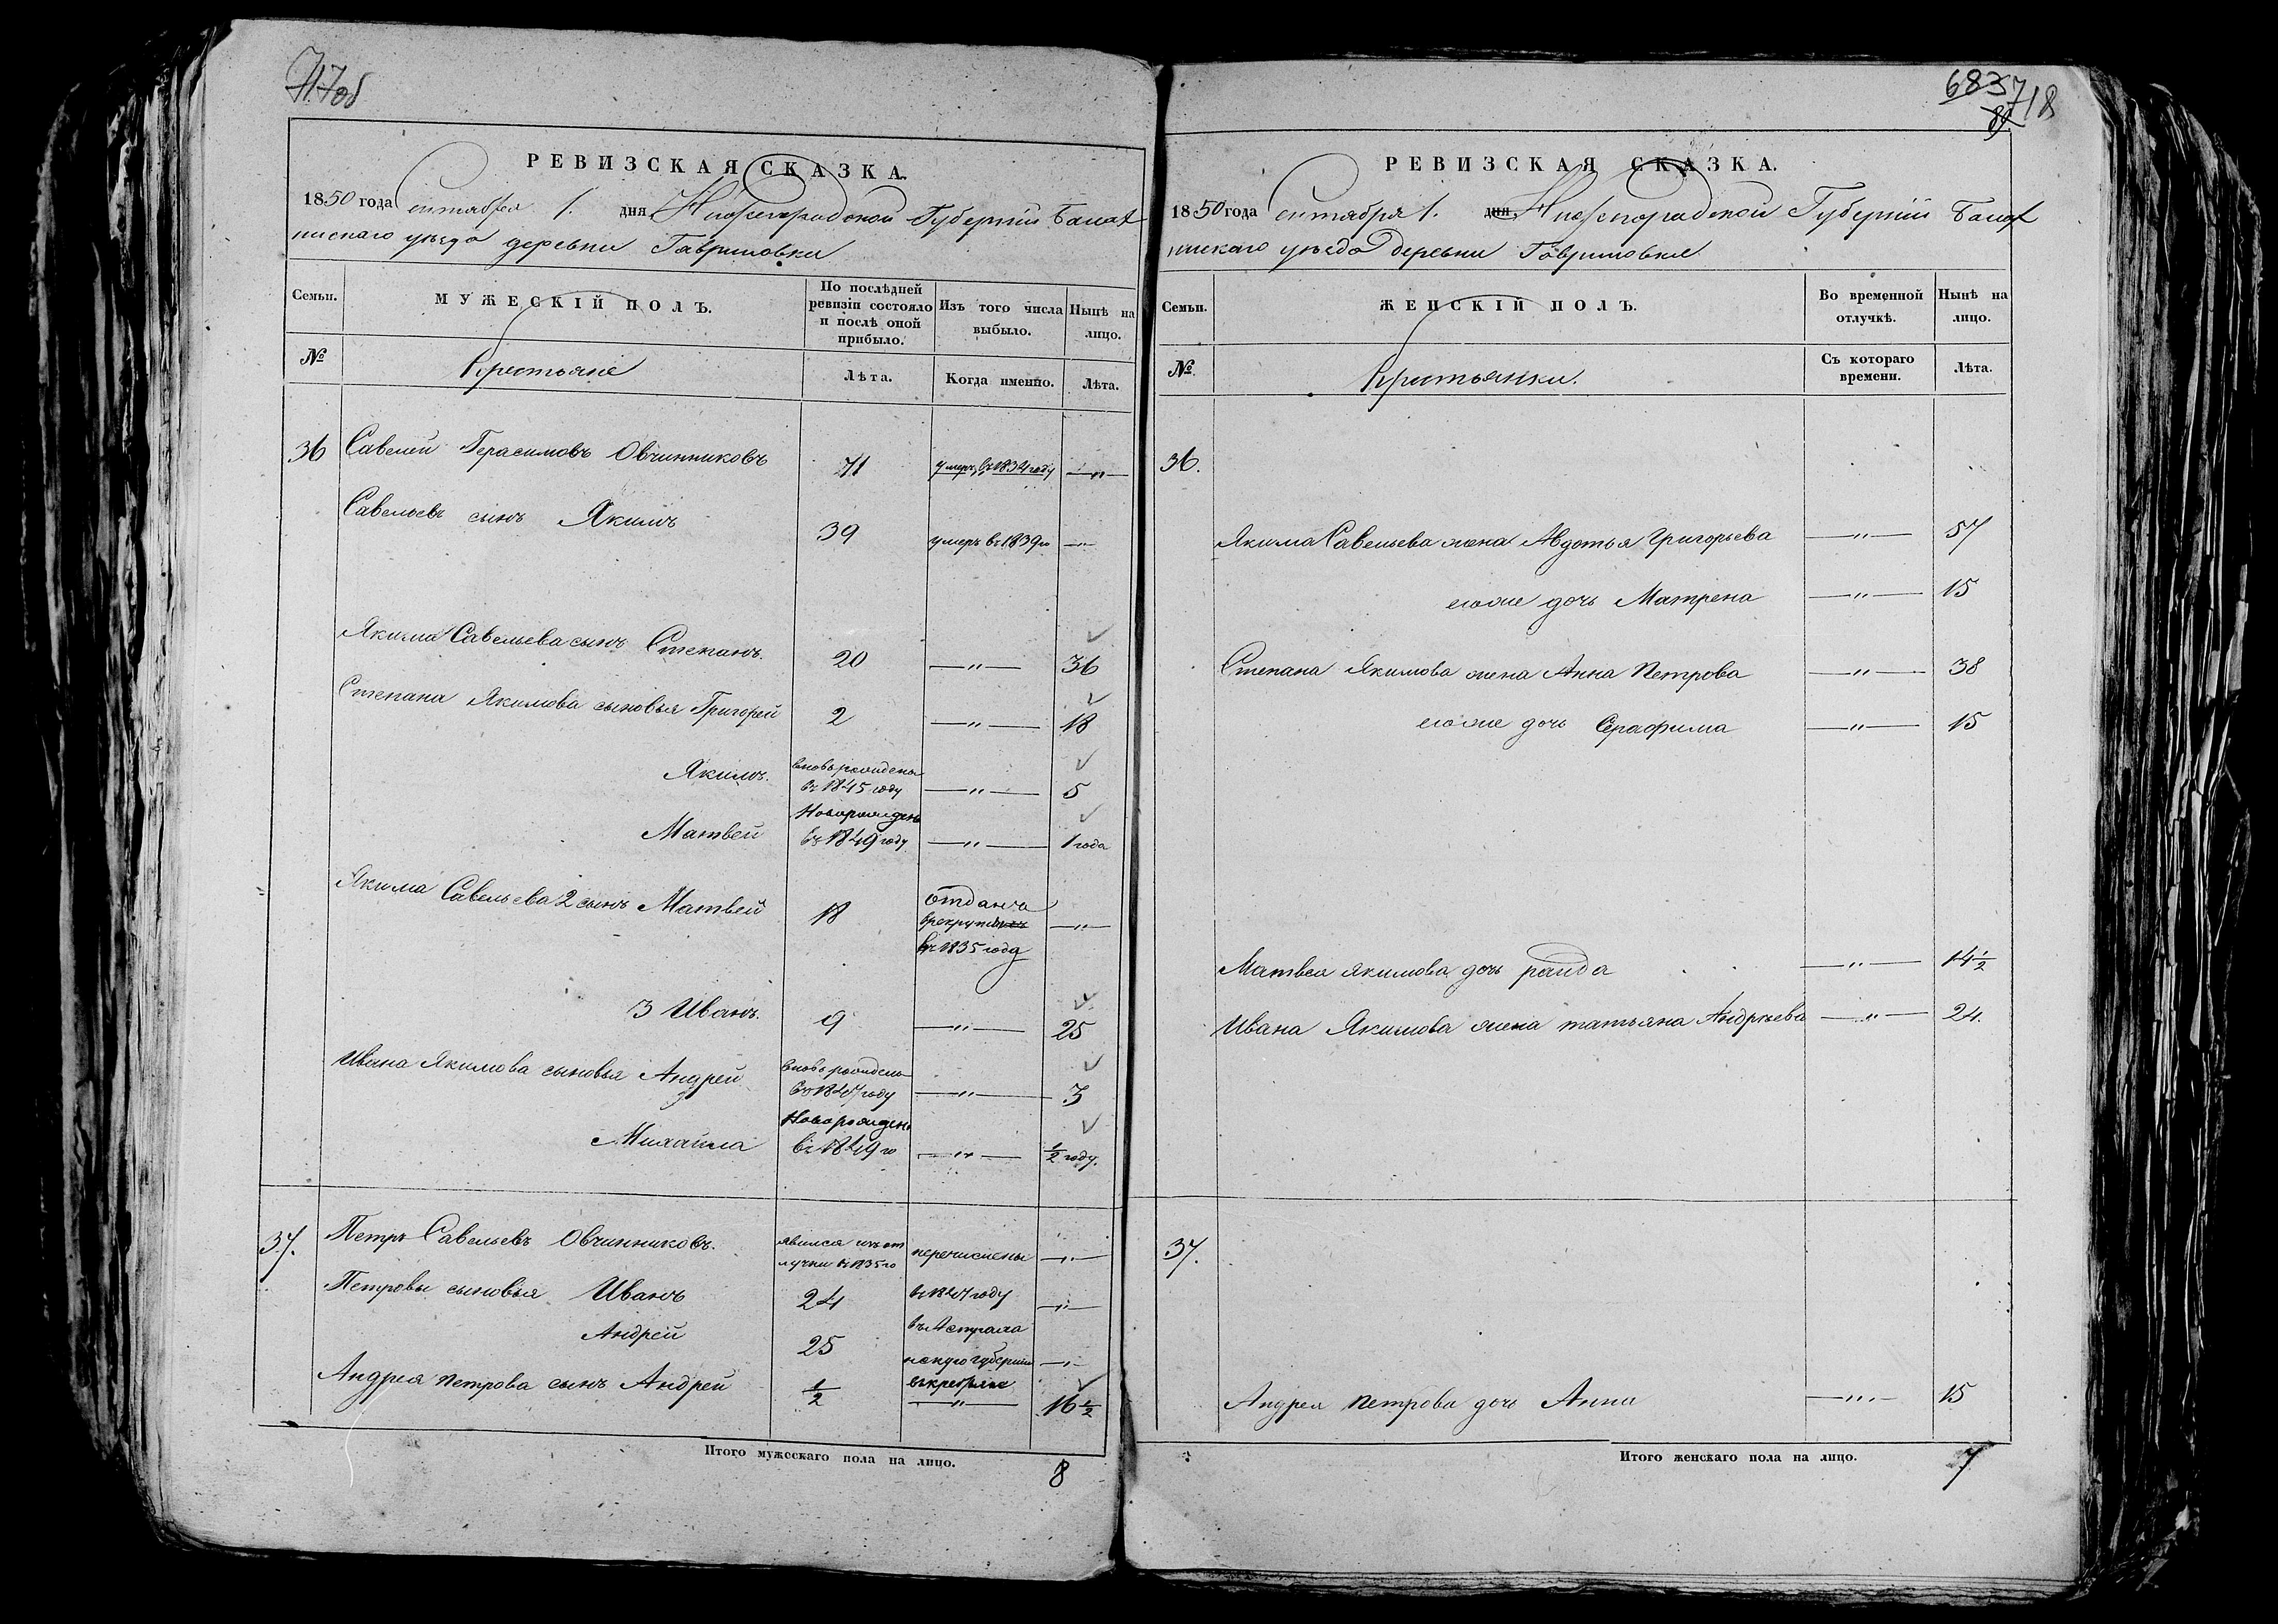 717об
РЕВИЗСКАЯ СКАЗКА.
1850 года Сентября 1. дня, Нижегородской Губернiи Балах
нискаго уѣзда деревни Гавриловки
Семьи.
МУЖЕСКІЙ ПОЛЪ.
По послѣдней ревизіи состояло и послѣ оной прибыло.
Изъ того числа выбыло.
Нынѣ на лицо.
№
Крестьяне
Лѣта.
Когда именно.
Лѣта.
36 Савелей Герасимовъ Овчинниковъ 71 умеръ въ 1834 году —„—
Савельевъ сынъ Якимъ 39 умеръ въ 1839 го —„—
Якима Савельева сынъ Степанъ. 20 —„— 36
Степана Якимова сыновья Григорей 2 —„— 18
Якимъ. вновь рожденъ въ 1845 году —„— 5
Матвей Новорожденъ въ 1849 году —„— 1 года
Якима Савельева 2 сынъ Матвей 18 отданъ в рекруты въ 1835 году —„—
3 Иванъ. 9 —„— 25
Ивана Якимова сыновья Андрей вновь рожденъ въ 1847 году —„— 3
Михайла Новорожденъ въ 1849 го —„— ½ году.
37. Петръ Савельевъ Овчинниковъ. явился изъ отлучки въ 1835 го перечислены —„—
Петровы сыновья Иванъ 24 въ 1847 году —„—
Андрей 25 въ Астрахансkую губернiю —„—
Андрея Петрова сынъ Андрей ½ —„— 16½
Итого мужескаго пола на лицо. 8
683 718
РЕВИЗСКАЯ СКАЗКА.
1850 года Сентября 1. дня, Нижегородской Губернiи Балах
нискаго уѣзда деревни Гавриловки
Семьи.
ЖЕНСКІЙ ПОЛЪ.
Во временной отлучкѣ.
Нынѣ на лицо.
№
Крестьянки.
Съ котораго времени.
Лѣта.
36.
Якима Савельева жена Авдотья Григорьева —„— 57
его же дочь Матрена —„— 15
Степана Якимова жена Анна Петрова —„— 38
его же дочь Серафима —„— 15
Матвея Якимова дочь —„— 14½
Ивана Якимова жена татьяна Андрѣева —„— 24.
37.
Андрея Петрова дочь Анна —„— 15
Итого женскаго пола на лицо. 7